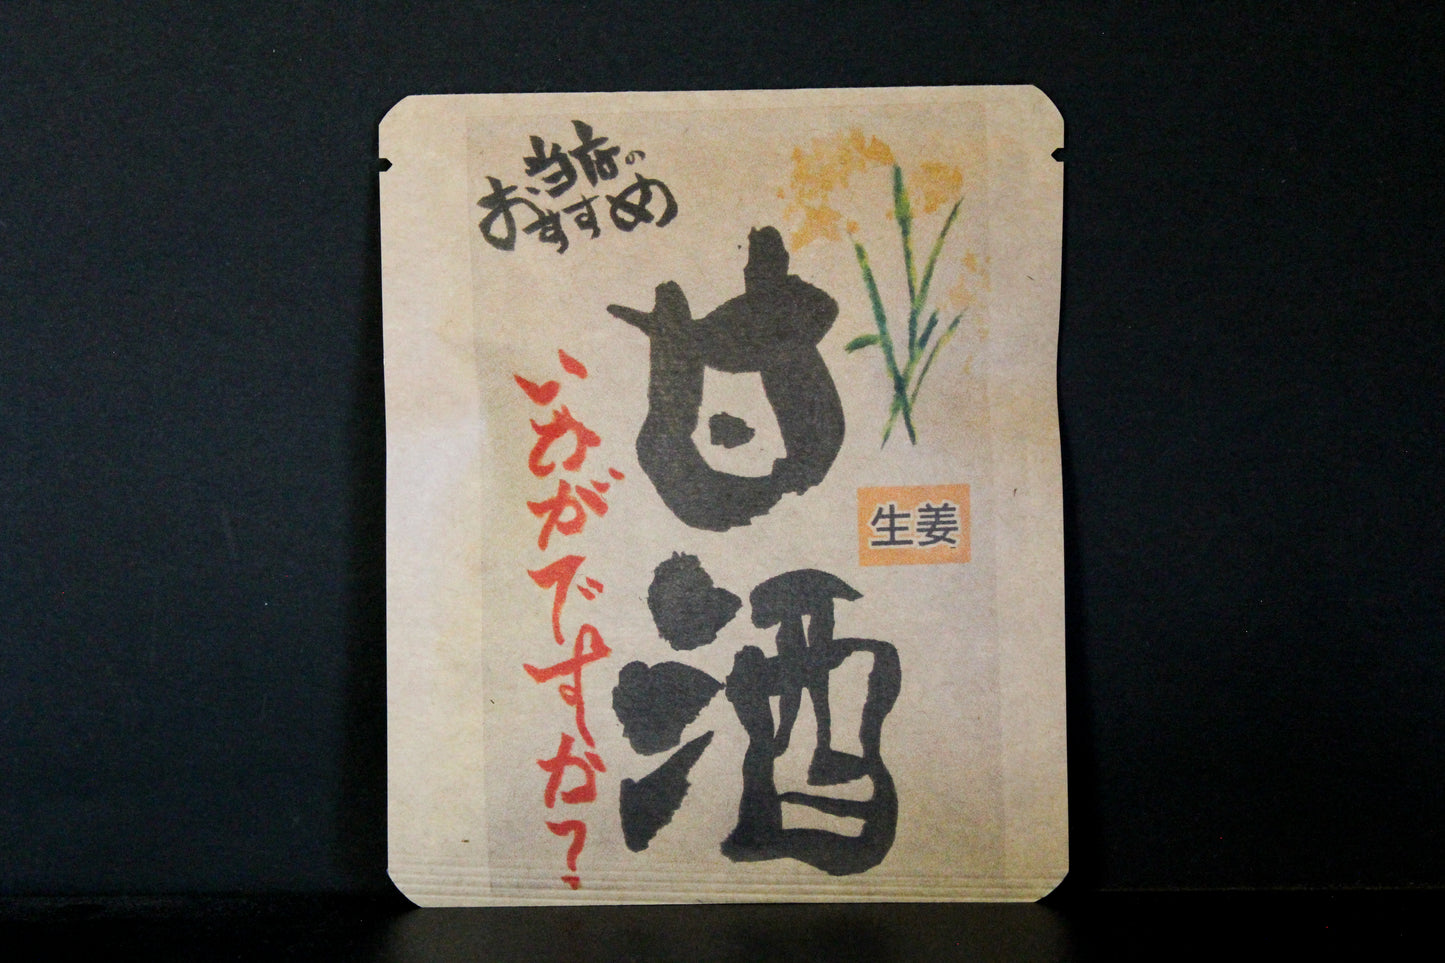 当店の
おすすめ
甘酒
生姜
いかがですか?